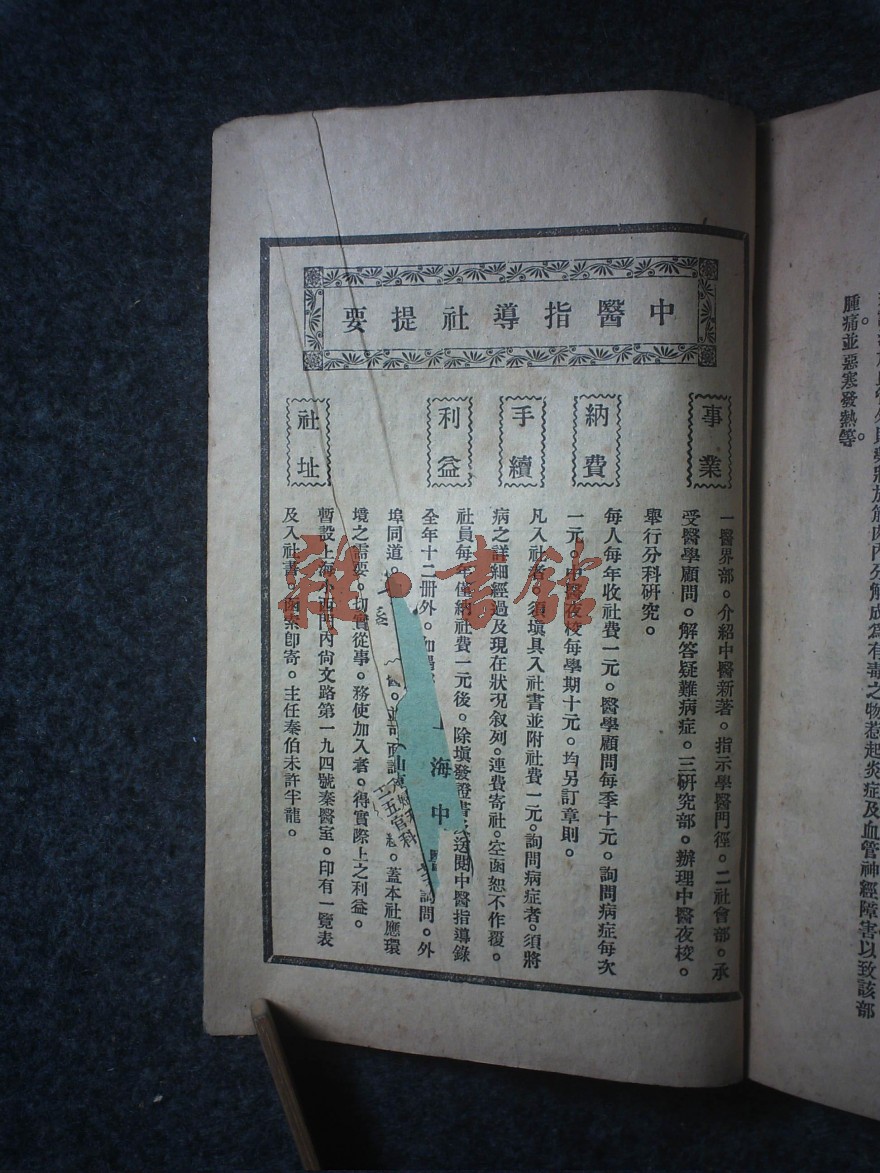 中醫指導社提要
事業
一醫界部。介紹中醫新著。指示學醫門徑。二社會部。承
受醫學顧問。解答疑難病症。三研究部。辦理中醫夜校。
舉行分科硏究。
納費
每人每年收社費一元。醫學顧問每季十元。詢問病症每次
一元。中醫夜校每學期十元。均另訂章則。
手續
凡入社者。須填具入社書並附社費一元。詢問病症者。須將
病之詳細經過及現在狀况叙列。連費寄社。空函恕不作覆。
利益
社員每年僅納社費一元後。除填發證書及送閱中醫指導錄
全年十二册外。詢問。外
埠同道。並可面。蓋本社應環
境之需要。切實從事。務使加入者。得實際上之利益。
社址
暫設上海小西門內尙文路第一九四號秦醫室。印有一覽表
及入社書。函索卽寄。主任秦伯未許半龍。
上海中醫
五官科
雜·書館
成爲有毒之物惹起炎症及血管神經障害以致該部
腫痛並惡寒發熱等。